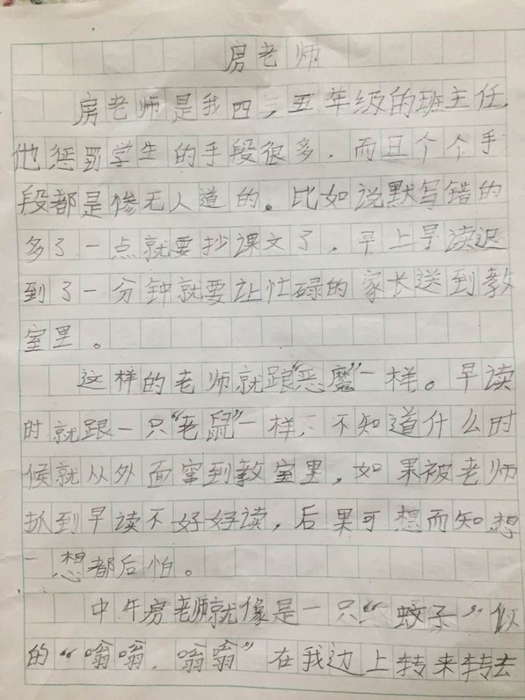 房老师
房老师是我四、五年级的班主任,
他惩罚学生的手段很多,而且个个手
段都是惨无人道的。比如说默写错的
多了一点就要抄课文了,早上早读迟
到了一分钟就要让忙碌的家长送到教
室里。
这样的老师就跟“恶魔”一样。早读
时就跟一只“老鼠”一样,不知道什么时
候就从外面窜到教室里,如果被老师
抓到早读不好好读,后果可想而知想
一想都后怕。
中午房老师就像是一只“蚊子”似
的“嗡嗡,嗡嗡”在我边上转来转去